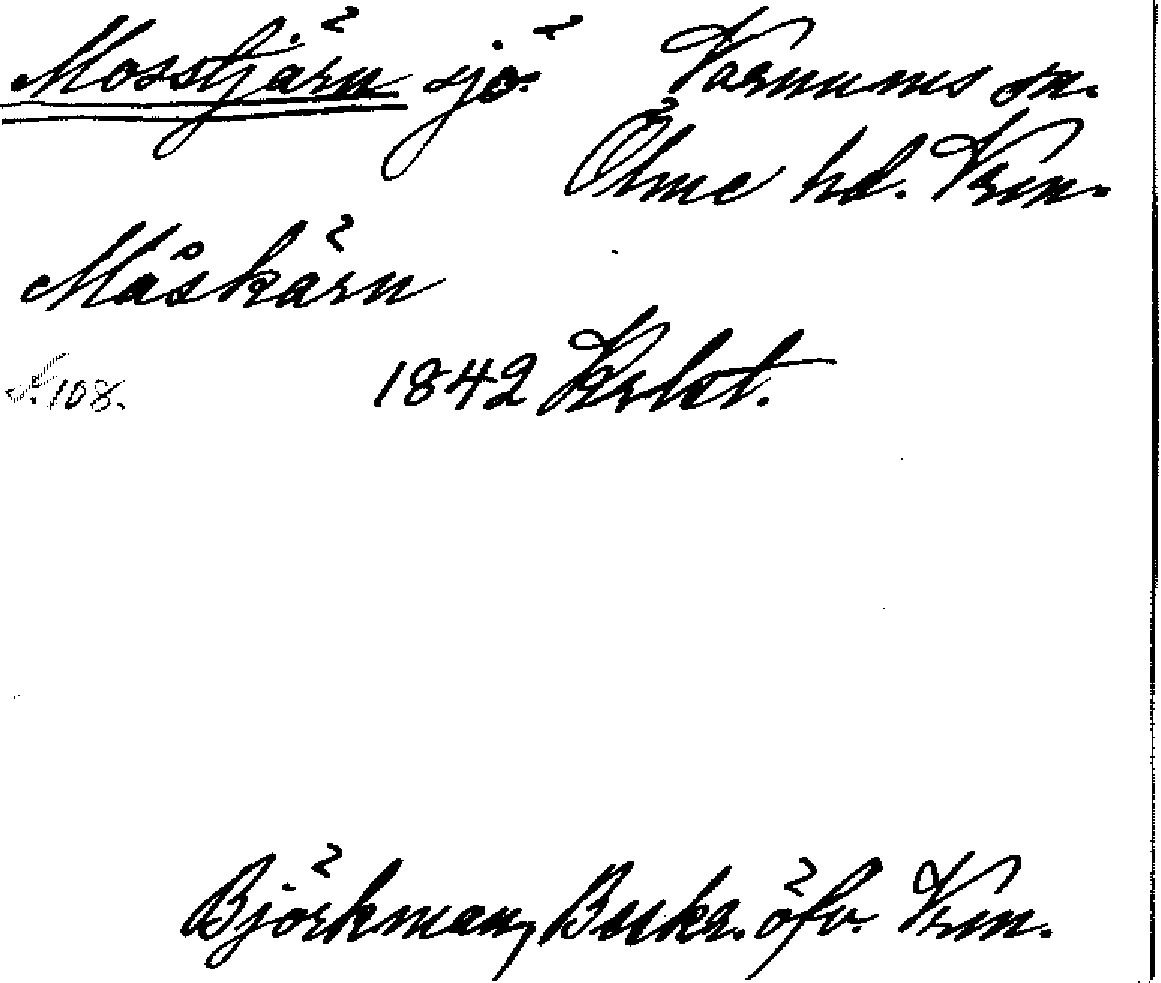 Mosstjärn sjö. Varnums sn.
Ölme hd. Vrm.
Måskärn
s. 108. 1842 Krtst.
Björkman, Beskr. öfv. Vrm.